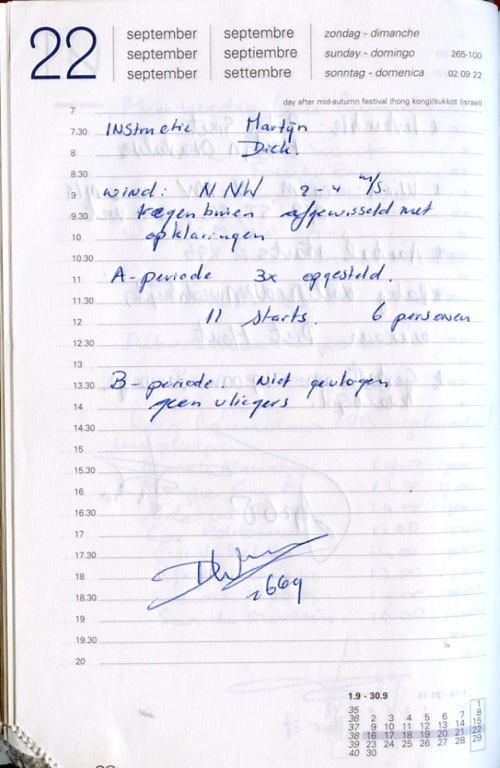 22
september septembre zondag - dimanche
september septiembre sunday - domingo 265-100
september settembre sonntag - domenica 02 09 22
day after mid-autumn festival (hong kong)/sukkot (israel)
7
7.30 INStructie Martijn
8 Dick.
8.30
9 wind: N NW 2-4 m/s.
9.30 regenbuien afgewisseld met
10 opklaringen
10.30
11 A-periode 3x opgesteld.
11.30
12 11 starts. 6 personen
12.30
13
13.30 B-periode. Niet gevlogen
14 geen vliegers
14.30
15
15.30
16
16.30
17
17.30
18
18.30 2669
19
19.30
20
1.9 - 30.9
35 1
36 2 3 4 5 6 7 8
37 9 10 11 12 13 14 15
38 16 17 18 19 20 21 22
39 23 24 25 26 27 28 29
40 30